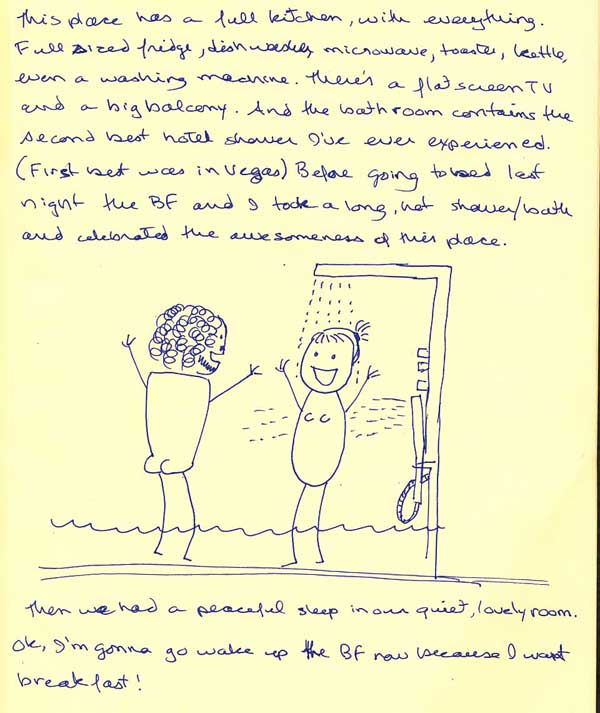 This place has a full kitchen, with everything.
Full sized fridge, dishwasher, microwave, toaster, kettle,
even a washing machine. There's a flat screen TV
and a big balcony. And the bathroom contains the
second best hotel shower I've ever experienced.
(First best was in Vegas) Before going to bed last
night the BF and I took a long, hot shower/bath
and celebrated the awesomeness of this place.
Then we had a peaceful sleep in our quiet, lovely room.
Ok, I'm gonna go wake up the BF now because I want
breakfast!